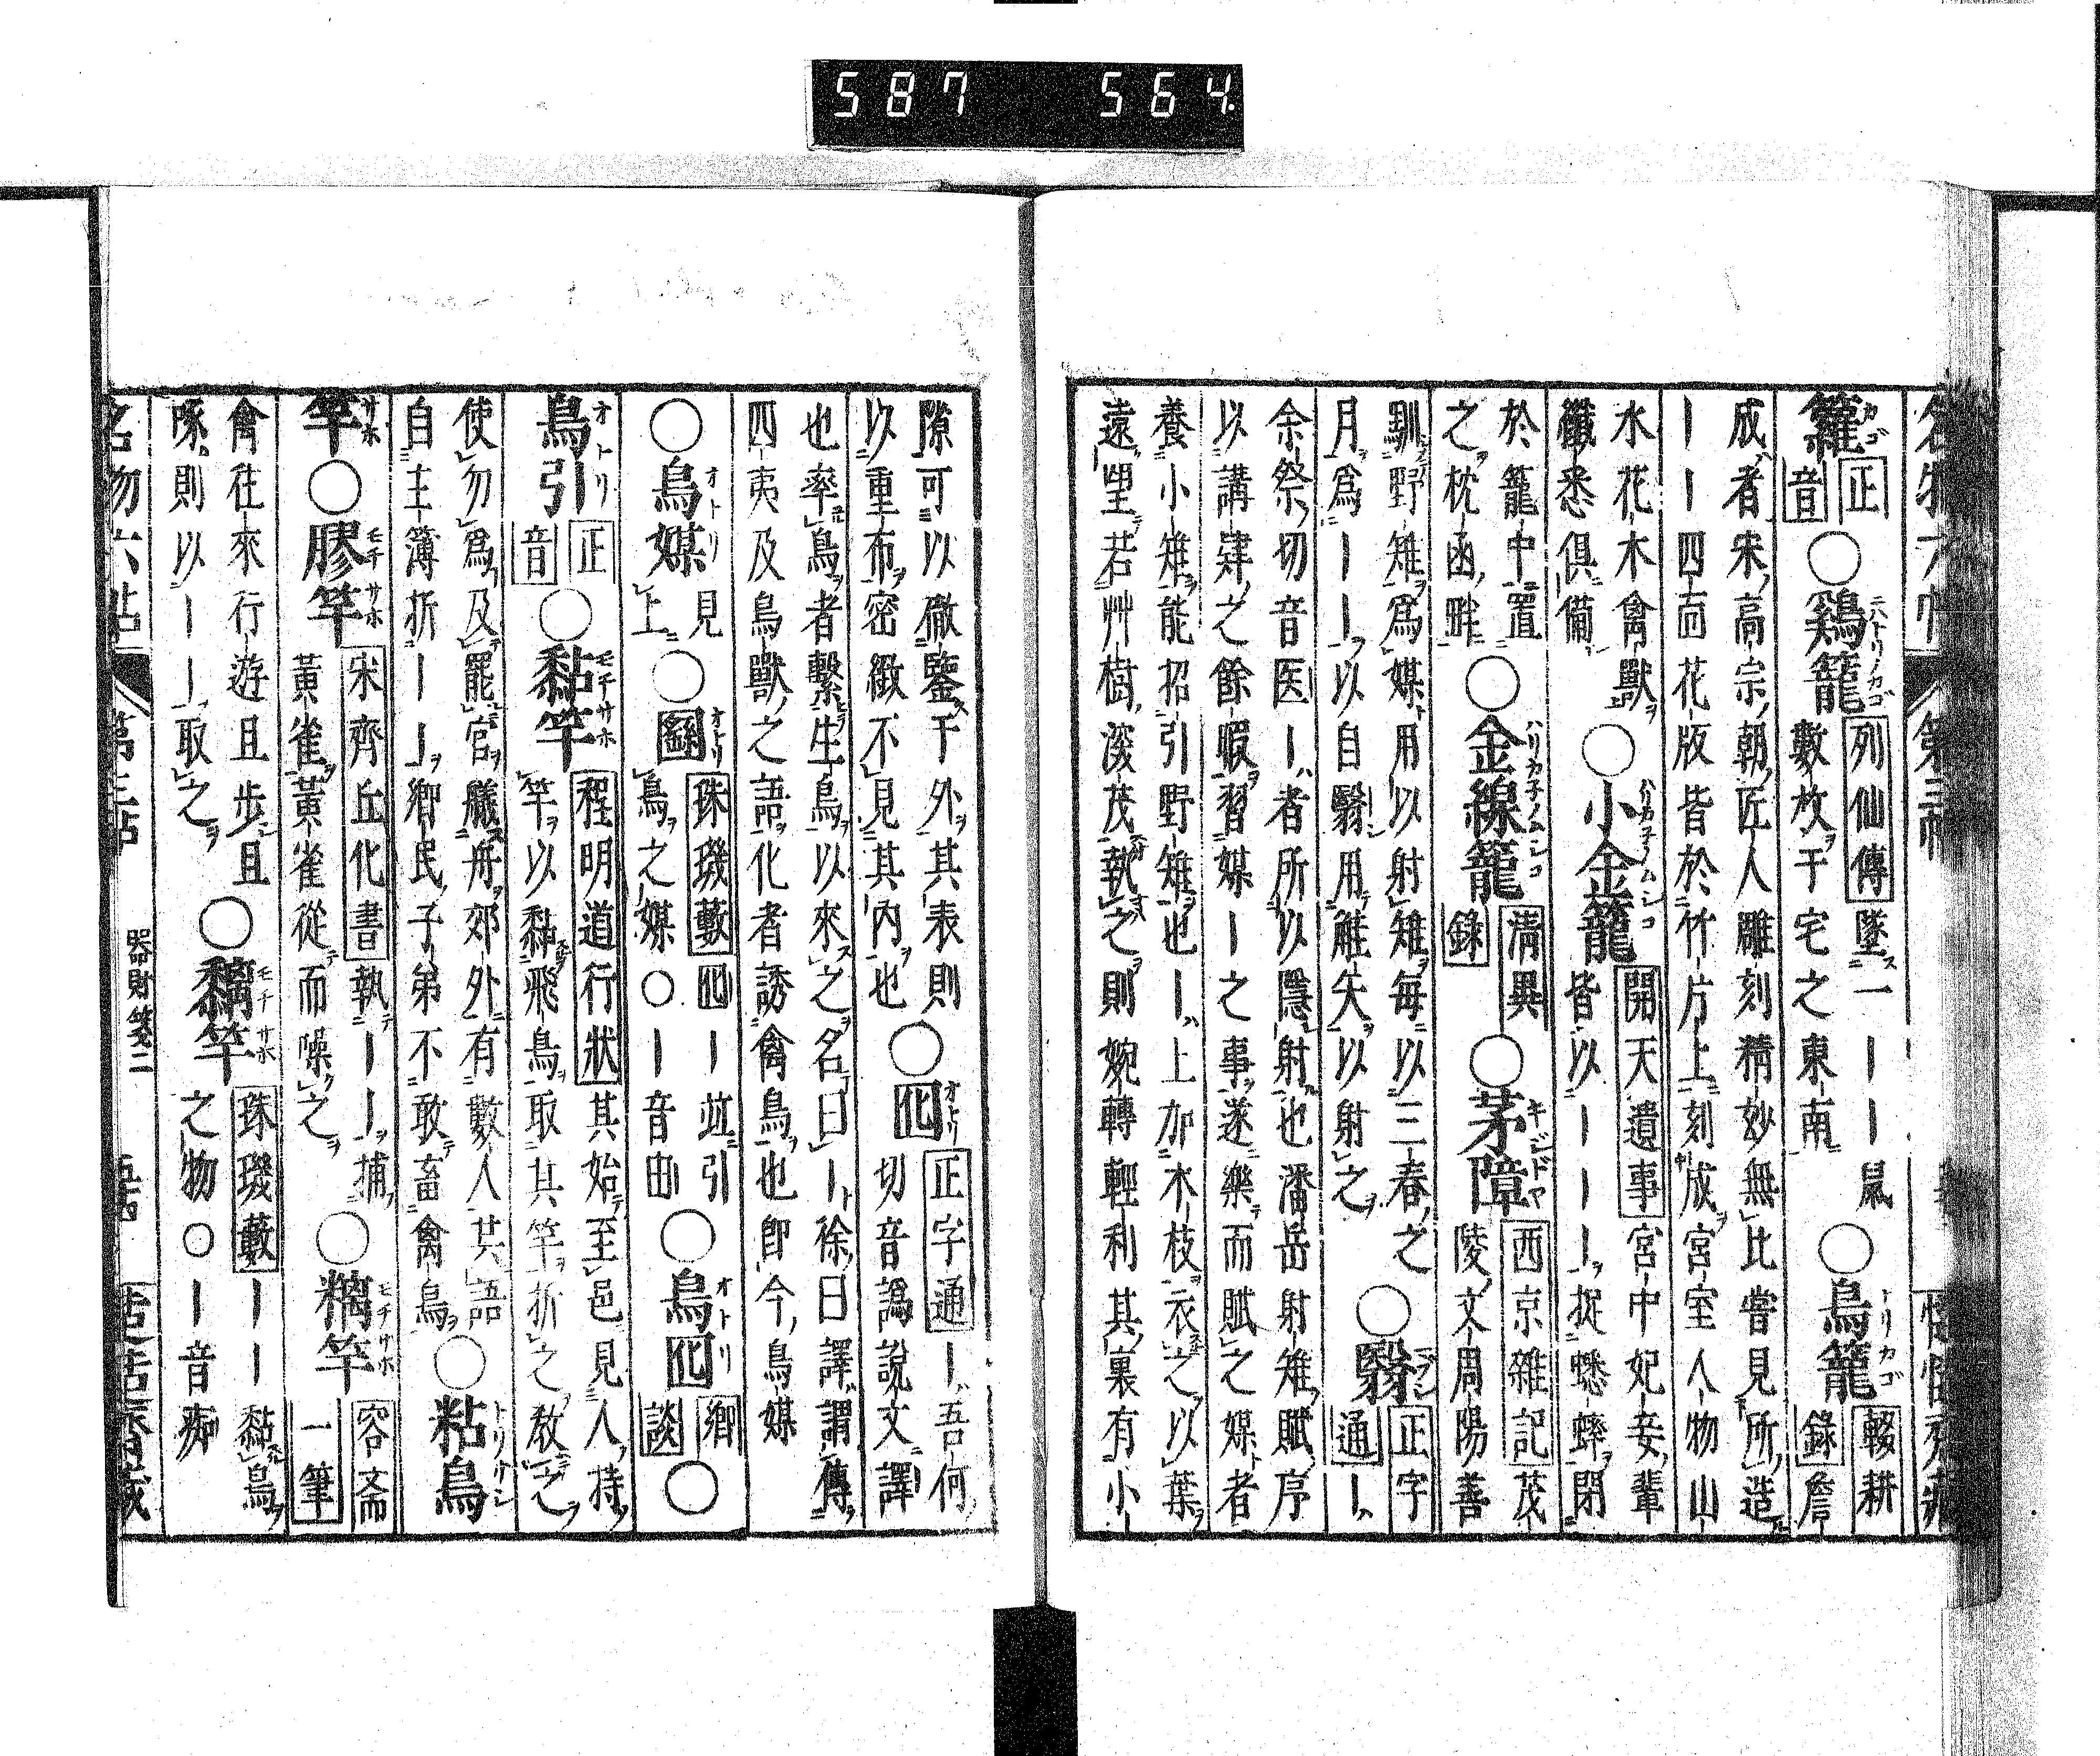 587 564.
籠カゴ 正音 ○鷄籠ニハトリノカゴ 列仙傳 墜一｜｜鼠數枚于宅之東南 ○鳥籠トリカゴ 輟耕錄 詹
成者宋高宗朝匠人雕刻精妙無比嘗見所造
｜｜四面花版皆於竹片上刻成宮室人物山
水花木禽獸纖悉俱備 ○小金籠ハリカ子ノムシコ 開天遺事 宮中妃妾輩皆以｜｜｜捉蟋蟀閉
於籠中置之枕函畔 ○金線籠ハリカ子ノムシコ 淸異錄 ○茅障キジドヤ 西京雜記 茂陵文周陽善
馴野雉爲媒用以射雉每以三春之月爲｜｜以自翳用觟矢以射之 ○翳マブシ 正字通 ｜
余祭切音医｜者所以隱射也潘岳射雉賦序
以講肄之餘暇習媒｜之事遂樂而賦之媒者
養小雉能招引野雉也｜上加木枝衣之以葉
遠望若艸樹深茂執之則婉轉輕利其裏有小
隙可以徹鑒于外其表則以重布密緻不見其內也 ○囮オトリ 正字通 ｜吾何切音譌說文譯
也率鳥者繫生鳥以來之名曰｜徐曰譯謂傳
四夷及鳥獸之語化者誘禽鳥也卽今鳥媒
○鳥媒オトリ 見上 ○𡈙オトリ 珠璣藪 囮｜竝引鳥之媒○｜音由 ○鳥囮オトリ 鄉談 ○
鳥引オトリ 正音 ○黏竿モチサホ 程明道行狀 其始至邑見人持竿以黏飛鳥取其竿折之敎之
使勿爲及罷官艤舟郊外有數人共語
自主簿折｜｜鄉民子弟不敢畜禽鳥 ○粘鳥
竿サホ ○膠竿モチサホ 宋齊丘化書 執｜｜捕黃雀黃雀從而噪之 ○䊆竿モチサホ 容斋一筆
禽往來行遊且步且啄則以｜｜取之 ○黐竿モチサホ 珠璣藪 ｜｜黏鳥之物○｜音痴
名物六帖 第三帖 器財箋二